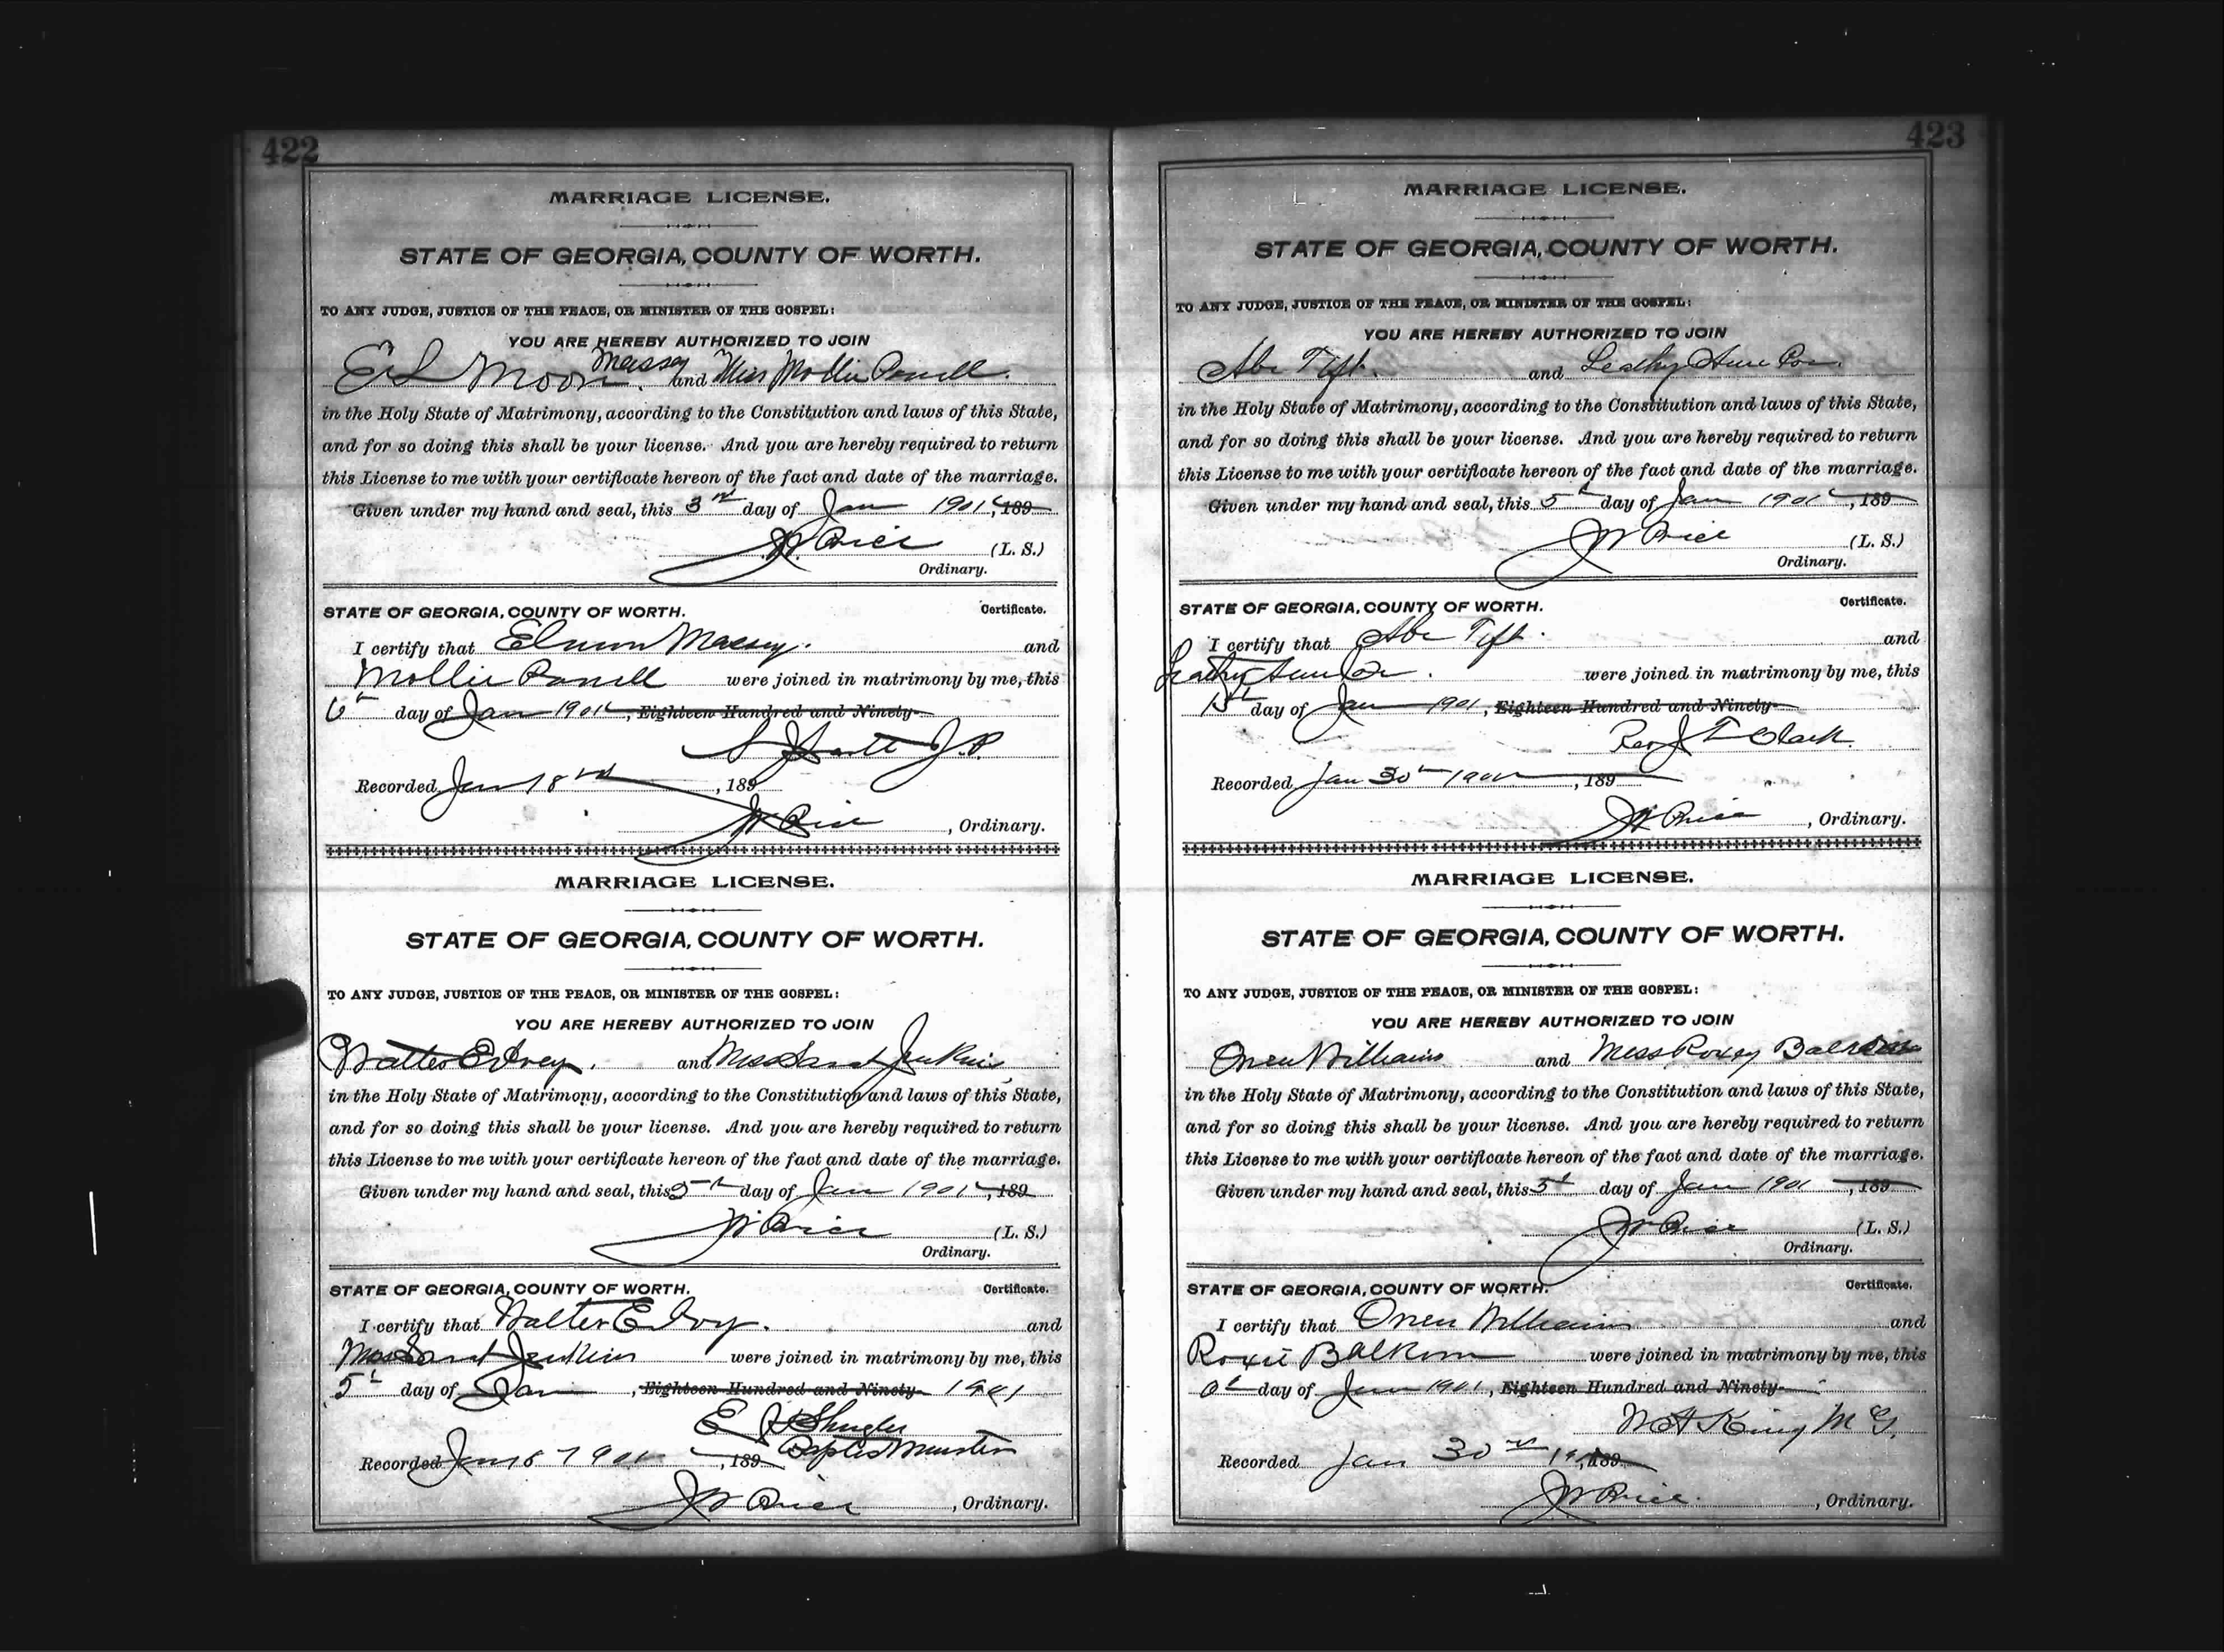 422
MARRIAGE LICENSE.
STATE OF GEORGIA, COUNTY OF WORTH.
TO ANY JUDGE, JUSTICE OF THE PEACE, OR MINISTER OF THE GOSPEL:
YOU ARE HEREBY AUTHORIZED TO JOIN
Massey
E L Moon. and Miss Mollie Powell.
in the Holy State of Matrimony, according to the Constitution and laws of this State,
and for so doing this shall be your license. And you are hereby required to return
this License to me with your certificate hereon of the fact and date of the marriage.
Given under my hand and seal, this 3rd day of Jan 1901, 189
JW Price (L. S.)
Ordinary.
STATE OF GEORGIA, COUNTY OF WORTH. Certificate.
I certify that Massey. and
Mollie Powell were joined in matrimony by me, this
6th day of Jan 1901, Eighteen Hundred and Ninety-
J.P.
Recorded Jan 18, 189
JW Price, Ordinary.
MARRIAGE LICENSE.
STATE OF GEORGIA, COUNTY OF WORTH.
TO ANY JUDGE, JUSTICE OF THE PEACE, OR MINISTER OF THE GOSPEL:
YOU ARE HEREBY AUTHORIZED TO JOIN
Walter E Ivey. and Miss Jenkins
in the Holy State of Matrimony, according to the Constitution and laws of this State,
and for so doing this shall be your license. And you are hereby required to return
this License to me with your certificate hereon of the fact and date of the marriage.
Given under my hand and seal, this 5th day of Jan 1901, 189
JW Price (L. S.)
Ordinary.
STATE OF GEORGIA, COUNTY OF WORTH. Certificate.
I certify that Walter E Ivy. and
Miss Jenkins were joined in matrimony by me, this
5th day of Jan, Eighteen Hundred and Ninety- 1901
E J Shugler
Baptist Minister
Recorded Jan 1901, 189
JW Price, Ordinary.
423
MARRIAGE LICENSE.
STATE OF GEORGIA, COUNTY OF WORTH.
TO ANY JUDGE, JUSTICE OF THE PEACE, OR MINISTER OF THE GOSPEL:
YOU ARE HEREBY AUTHORIZED TO JOIN
Abe Tift. and Leathy Ann Cox.
in the Holy State of Matrimony, according to the Constitution and laws of this State,
and for so doing this shall be your license. And you are hereby required to return
this License to me with your certificate hereon of the fact and date of the marriage.
Given under my hand and seal, this 5th day of Jan 1901, 189
JW Price (L. S.)
Ordinary.
STATE OF GEORGIA, COUNTY OF WORTH. Certificate.
I certify that Abe Tift. and
Leathy Ann Cox. were joined in matrimony by me, this
day of Jan 1901, Eighteen Hundred and Ninety-
Rev J T Clark.
Recorded Jan 30th 1901, 189
JW Price, Ordinary.
MARRIAGE LICENSE.
STATE OF GEORGIA, COUNTY OF WORTH.
TO ANY JUDGE, JUSTICE OF THE PEACE, OR MINISTER OF THE GOSPEL:
YOU ARE HEREBY AUTHORIZED TO JOIN
Owen Williams and Miss Roxey Balkom
in the Holy State of Matrimony, according to the Constitution and laws of this State,
and for so doing this shall be your license. And you are hereby required to return
this License to me with your certificate hereon of the fact and date of the marriage.
Given under my hand and seal, this 5th day of Jan 1901, 189
JW Price (L. S.)
Ordinary.
STATE OF GEORGIA, COUNTY OF WORTH. Certificate.
I certify that Owen Williams and
Roxie Balkom were joined in matrimony by me, this
6th day of Jan 1901, Eighteen Hundred and Ninety-
King M G.
Recorded Jan 30th, 189
JW Price., Ordinary.